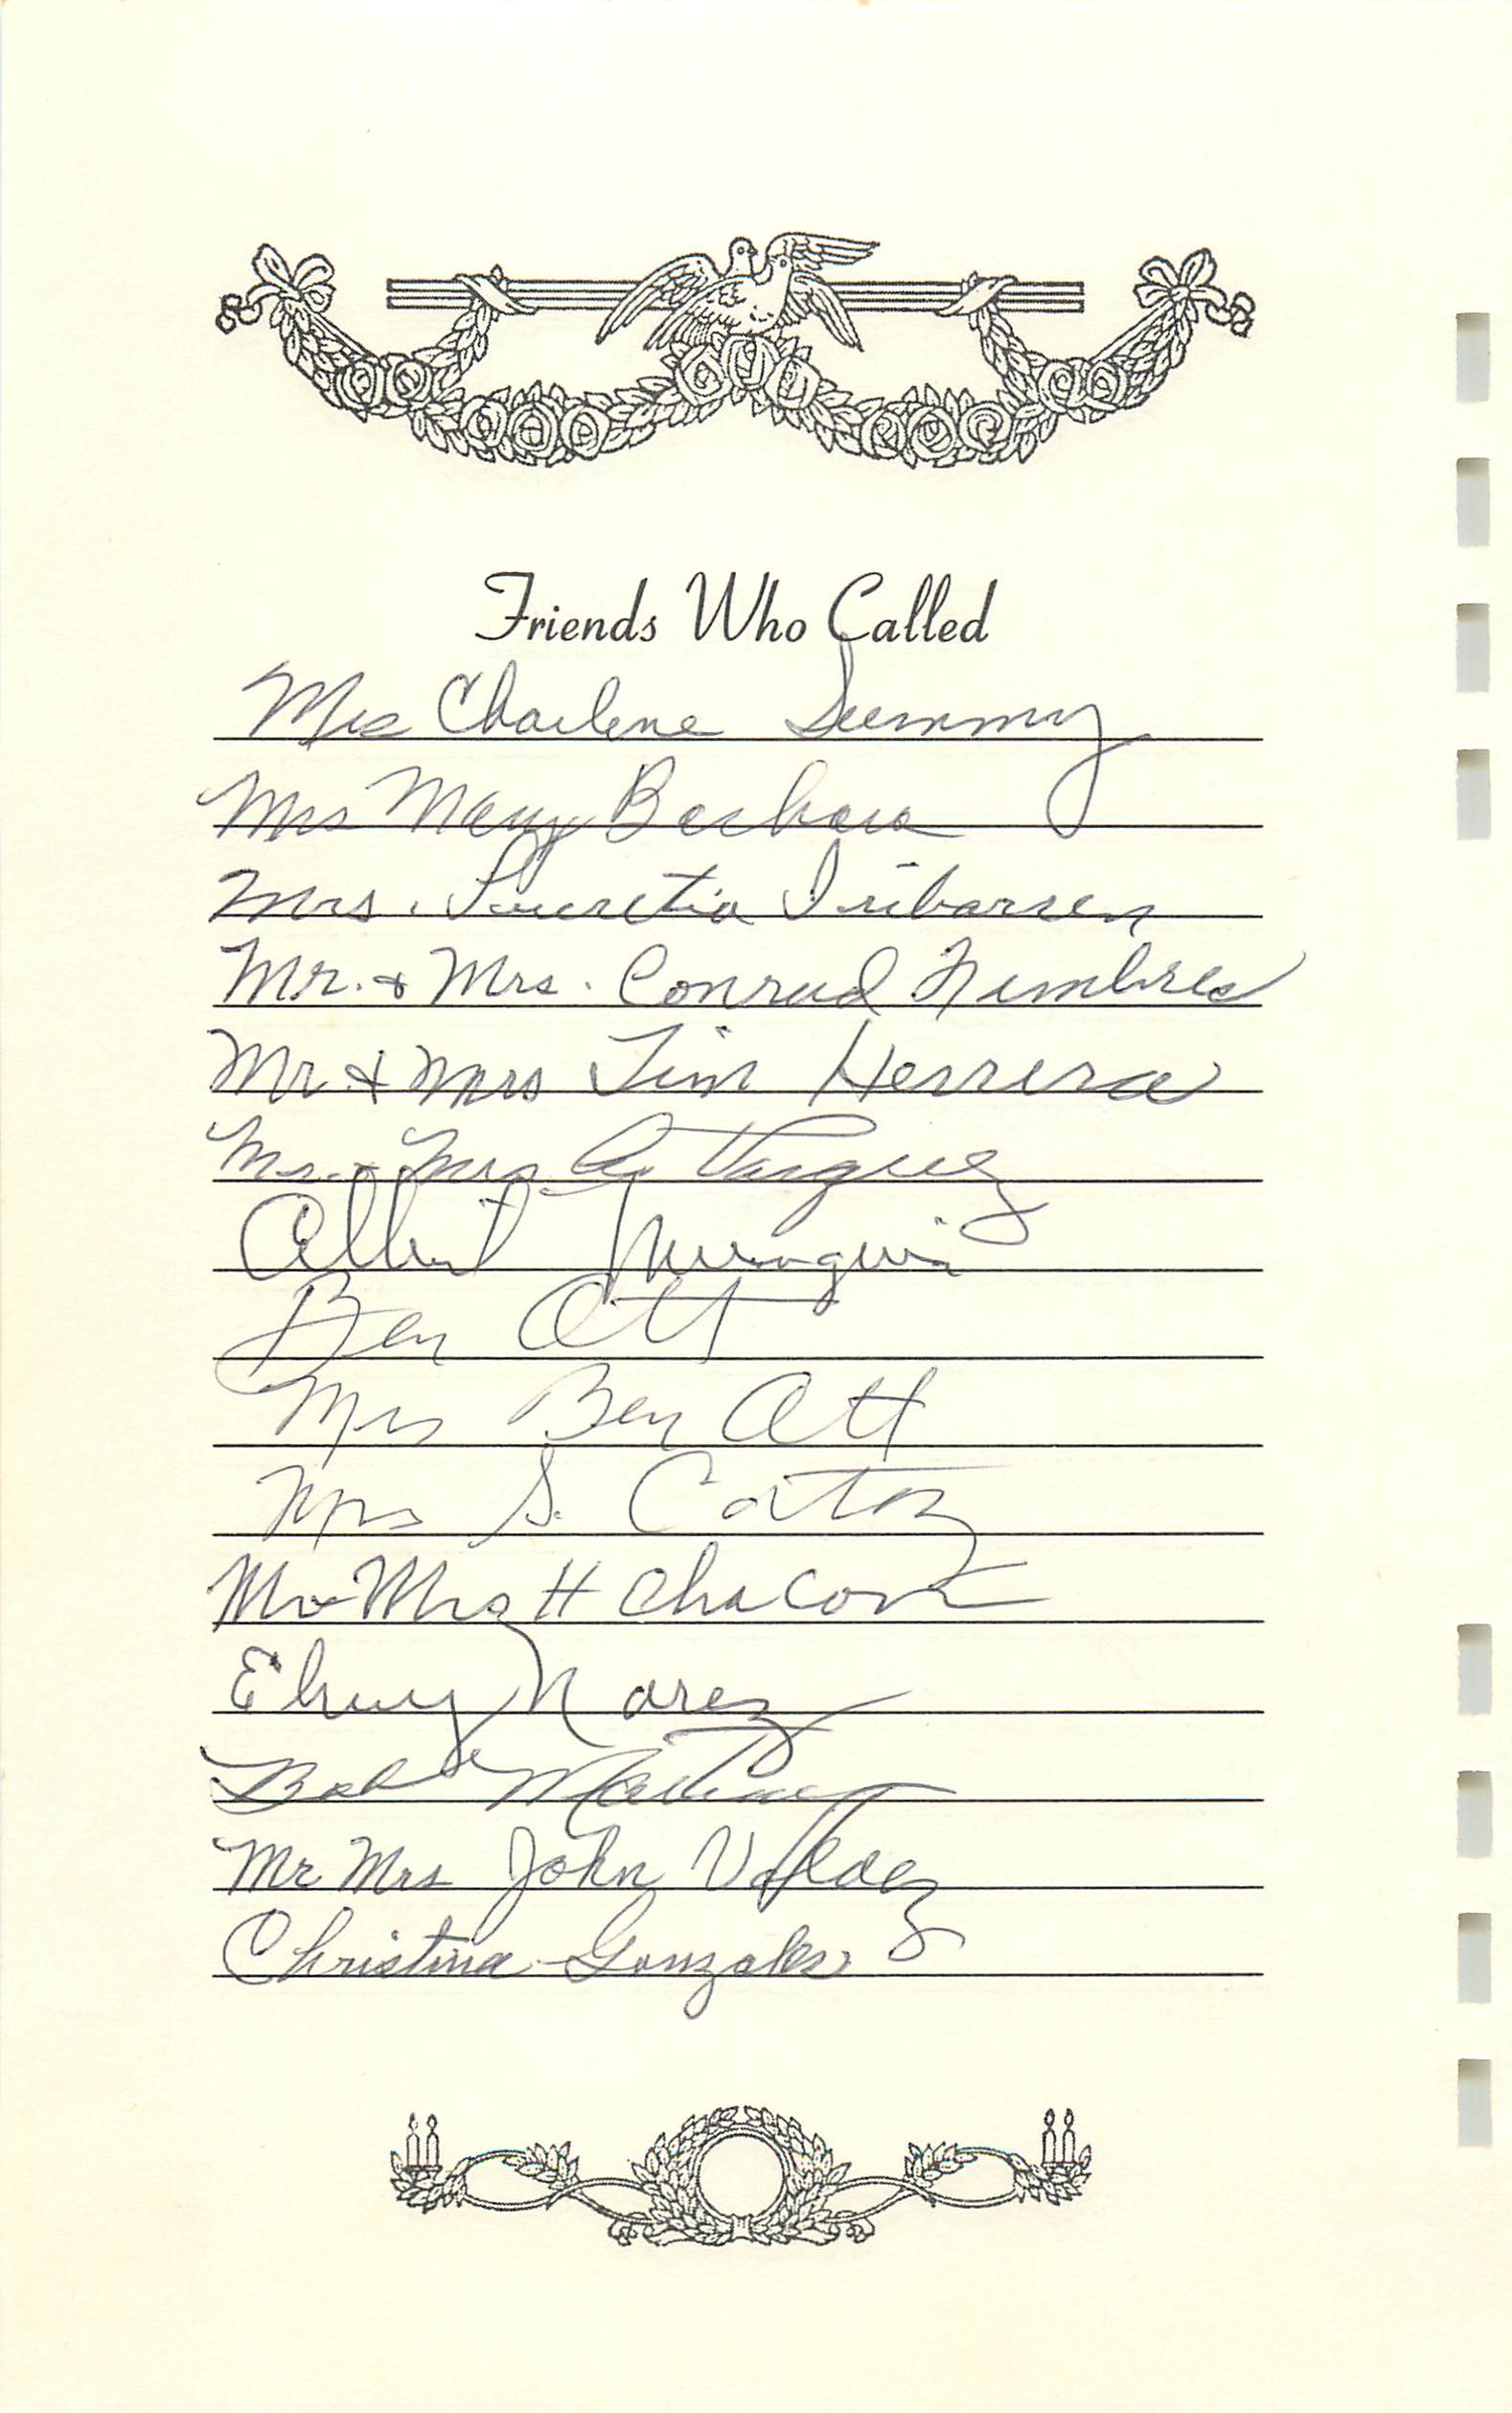 Friends Who Called
Mrs Charlene Summy
Mrs Mary Barbara
Mrs. Lucretia Iribarren
Mr. & Mrs. Conrad Nimbres
Mr & Mrs Tim Herrera
Mr. & Mrs. Vasquez
Albert
Ben Ott
Mrs Ben Ott
Mrs S. Cortez
Mr Mrs H Chacon
Narez
Bob Martinez
Mr Mrs John Valdez
Christina Gonzales